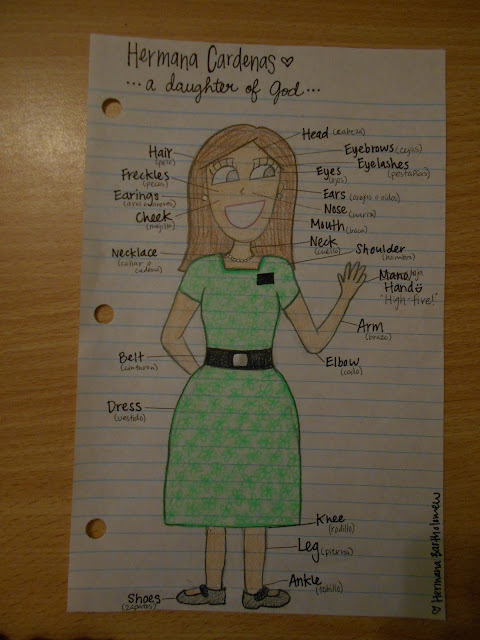 Hermana Cardenas ♡
...a daughter of God...
Head (cabeza)
Hair
(pelo)
Eyebrows (cejas)
Eyelashes
(pestañas)
Freckles
(pecas)
Eyes
(ojos)
Earings
Ears
Cheek
(mejilla)
Nose
Mouth (boca)
Neck
(cuello)
Necklace
(collar o
Shoulder
(hombro)
Mano
Hand
"High-five!"
Arm
(brazo)
Belt
Elbow
(codo)
Dress
(vestido)
Knee
(rodilla)
Leg (pierna)
Ankle
Shoes
(zapatos)
♡ Hermana Bartholomew